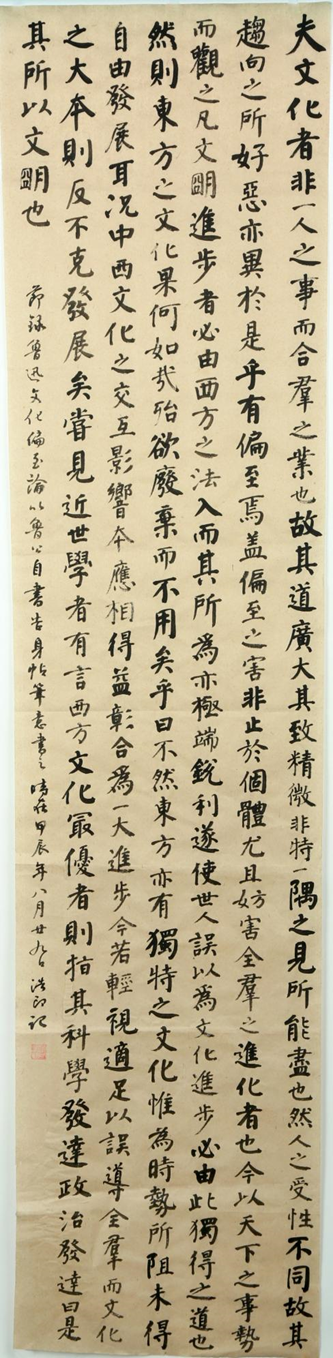 夫文化者非一人之事而合羣之業也故其道廣大其致精微非特一隅之見所能盡也然人之受性不同故其
趨向之所好惡亦異於是乎有偏至焉盖偏至之害非止於個體尤且妨害全羣之進化者也今以天下之事勢
而觀之凡文朙進步者必由西方之法入而其所為亦極端銳利遂使世人誤以為文化進步必由此獨得之道也
然則東方之文化果何如哉殆欲廢棄而不用矣乎曰不然東方亦有獨特之文化惟為時勢所阻未得
自由發展耳況中西文化之交互影響本應相得益彰合為一大進步今若輕視適足以誤導全羣而文化
之大本則反不克發展矣嘗見近世學者有言西方文化最優者則指其科學發達政治發達曰是
其所以文朙也
節錄魯迅文化偏至論以魯公自書告身帖筆意書之 時在甲辰年八月廿九日 浩記